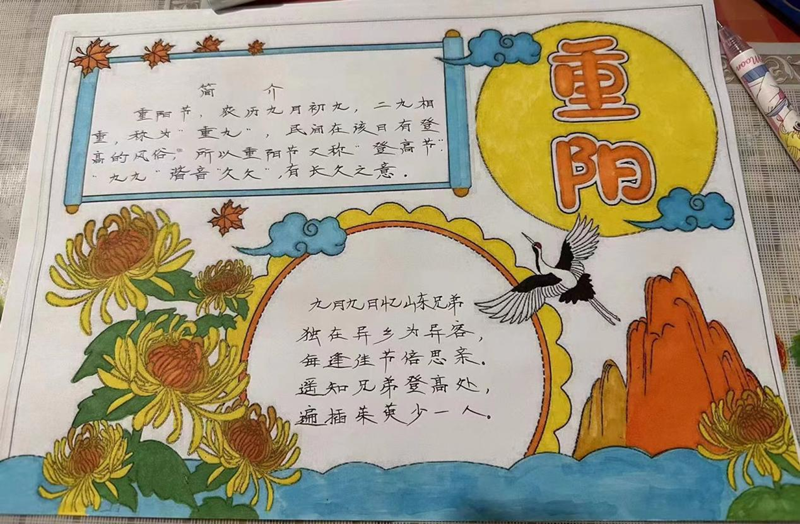 重阳
简 介
重阳节，农历九月初九，二九相
重，称为"重九"，民间在该日有登
高的风俗，所以重阳节又称"登高节".
"九九"谐音"久久"，有长久之意.
九月九日忆山东兄弟
独在异乡为异客，
每逢佳节倍思亲.
遥知兄弟登高处，
遍插茱萸少一人。
Moon